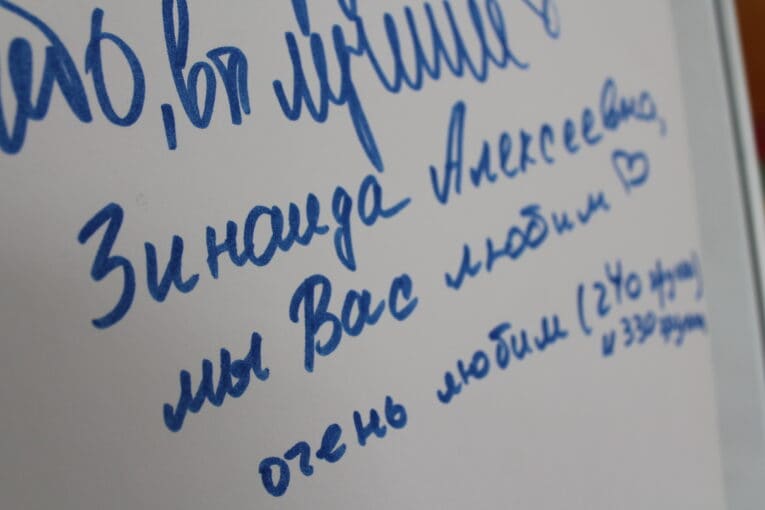 , вы лучший
Зинаида Алексеевна,
мы Вас любим ♡
очень любим (240 групп)
и 330 групп